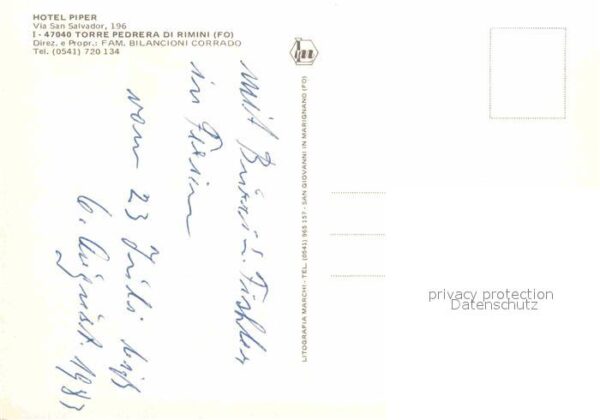 HOTEL PIPER
Via San Salvador, 196
I - 47040 TORRE PEDRERA DI RIMINI (FO)
Direz. e Propr.: FAM. BILANCIONI CORRADO
Tel. (0541) 720 134
mit
in
vom 23 Juli bis
6. August. 1983
LITOGRAFIA MARCHI - TEL. (0541) 965 157 - SAN GIOVANNI IN MARIGNANO (FO)
privacy protection
Datenschutz